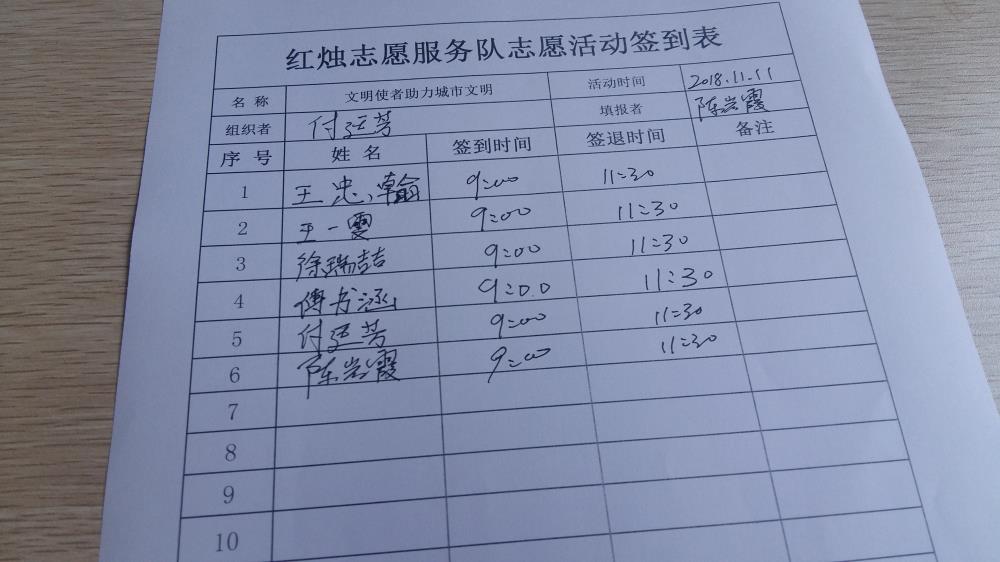 红烛志愿服务队志愿活动签到表
名 称 文明使者助力城市文明 活动时间 2018.11.11
组织者 付廷芳 填报者 陈岩霞
序 号 姓 名 签到时间 签退时间 备注
1 王忠翰 9:00 11:30
2 王一雯 9:00 11:30
3 徐瑞喆 9:00 11:30
4 傅书涵 9:00 11:30
5 付廷芳 9:00 11:30
6 陈岩霞 9:00 11:30
7
8
9
10